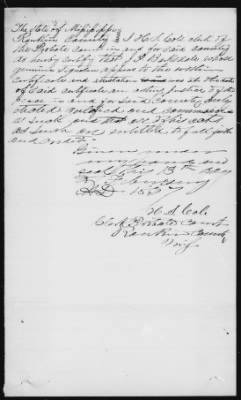 The State of Mississippi
Rankin County } I H. S. Cole clerk of
the Probate Court in and for said county
do hereby certify that J. P. Barksdale whose
genuine signature appears to the
certificate and was at the date
of said certificate an acting Justice of the
Peace in and for said County duly
elected qualified and commissioned
as such and that all of his acts
as such are entitled to full faith
and credit.
Given under
my hand and
seal this 13th day
of February
AD 1857
H. S. Cole
Clerk Probate Court
Rankin County
Miss